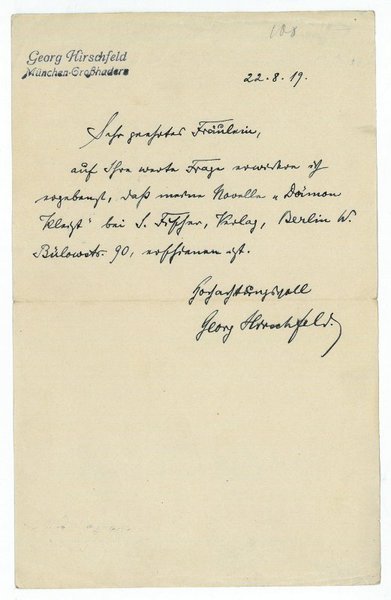 108
Georg Hirschfeld
München-Großhadern
22.8.19.
Sehr geehrtes Fräulein,
auf Ihre werte Frage erwidere ich
ergebenst, daß meine Novelle „Dämon
Kleist" bei S. Fischer, Verlag, Berlin W.
Bülowstr. 90, erschienen ist.
Hochachtungsvoll
Georg Hirschfeld.